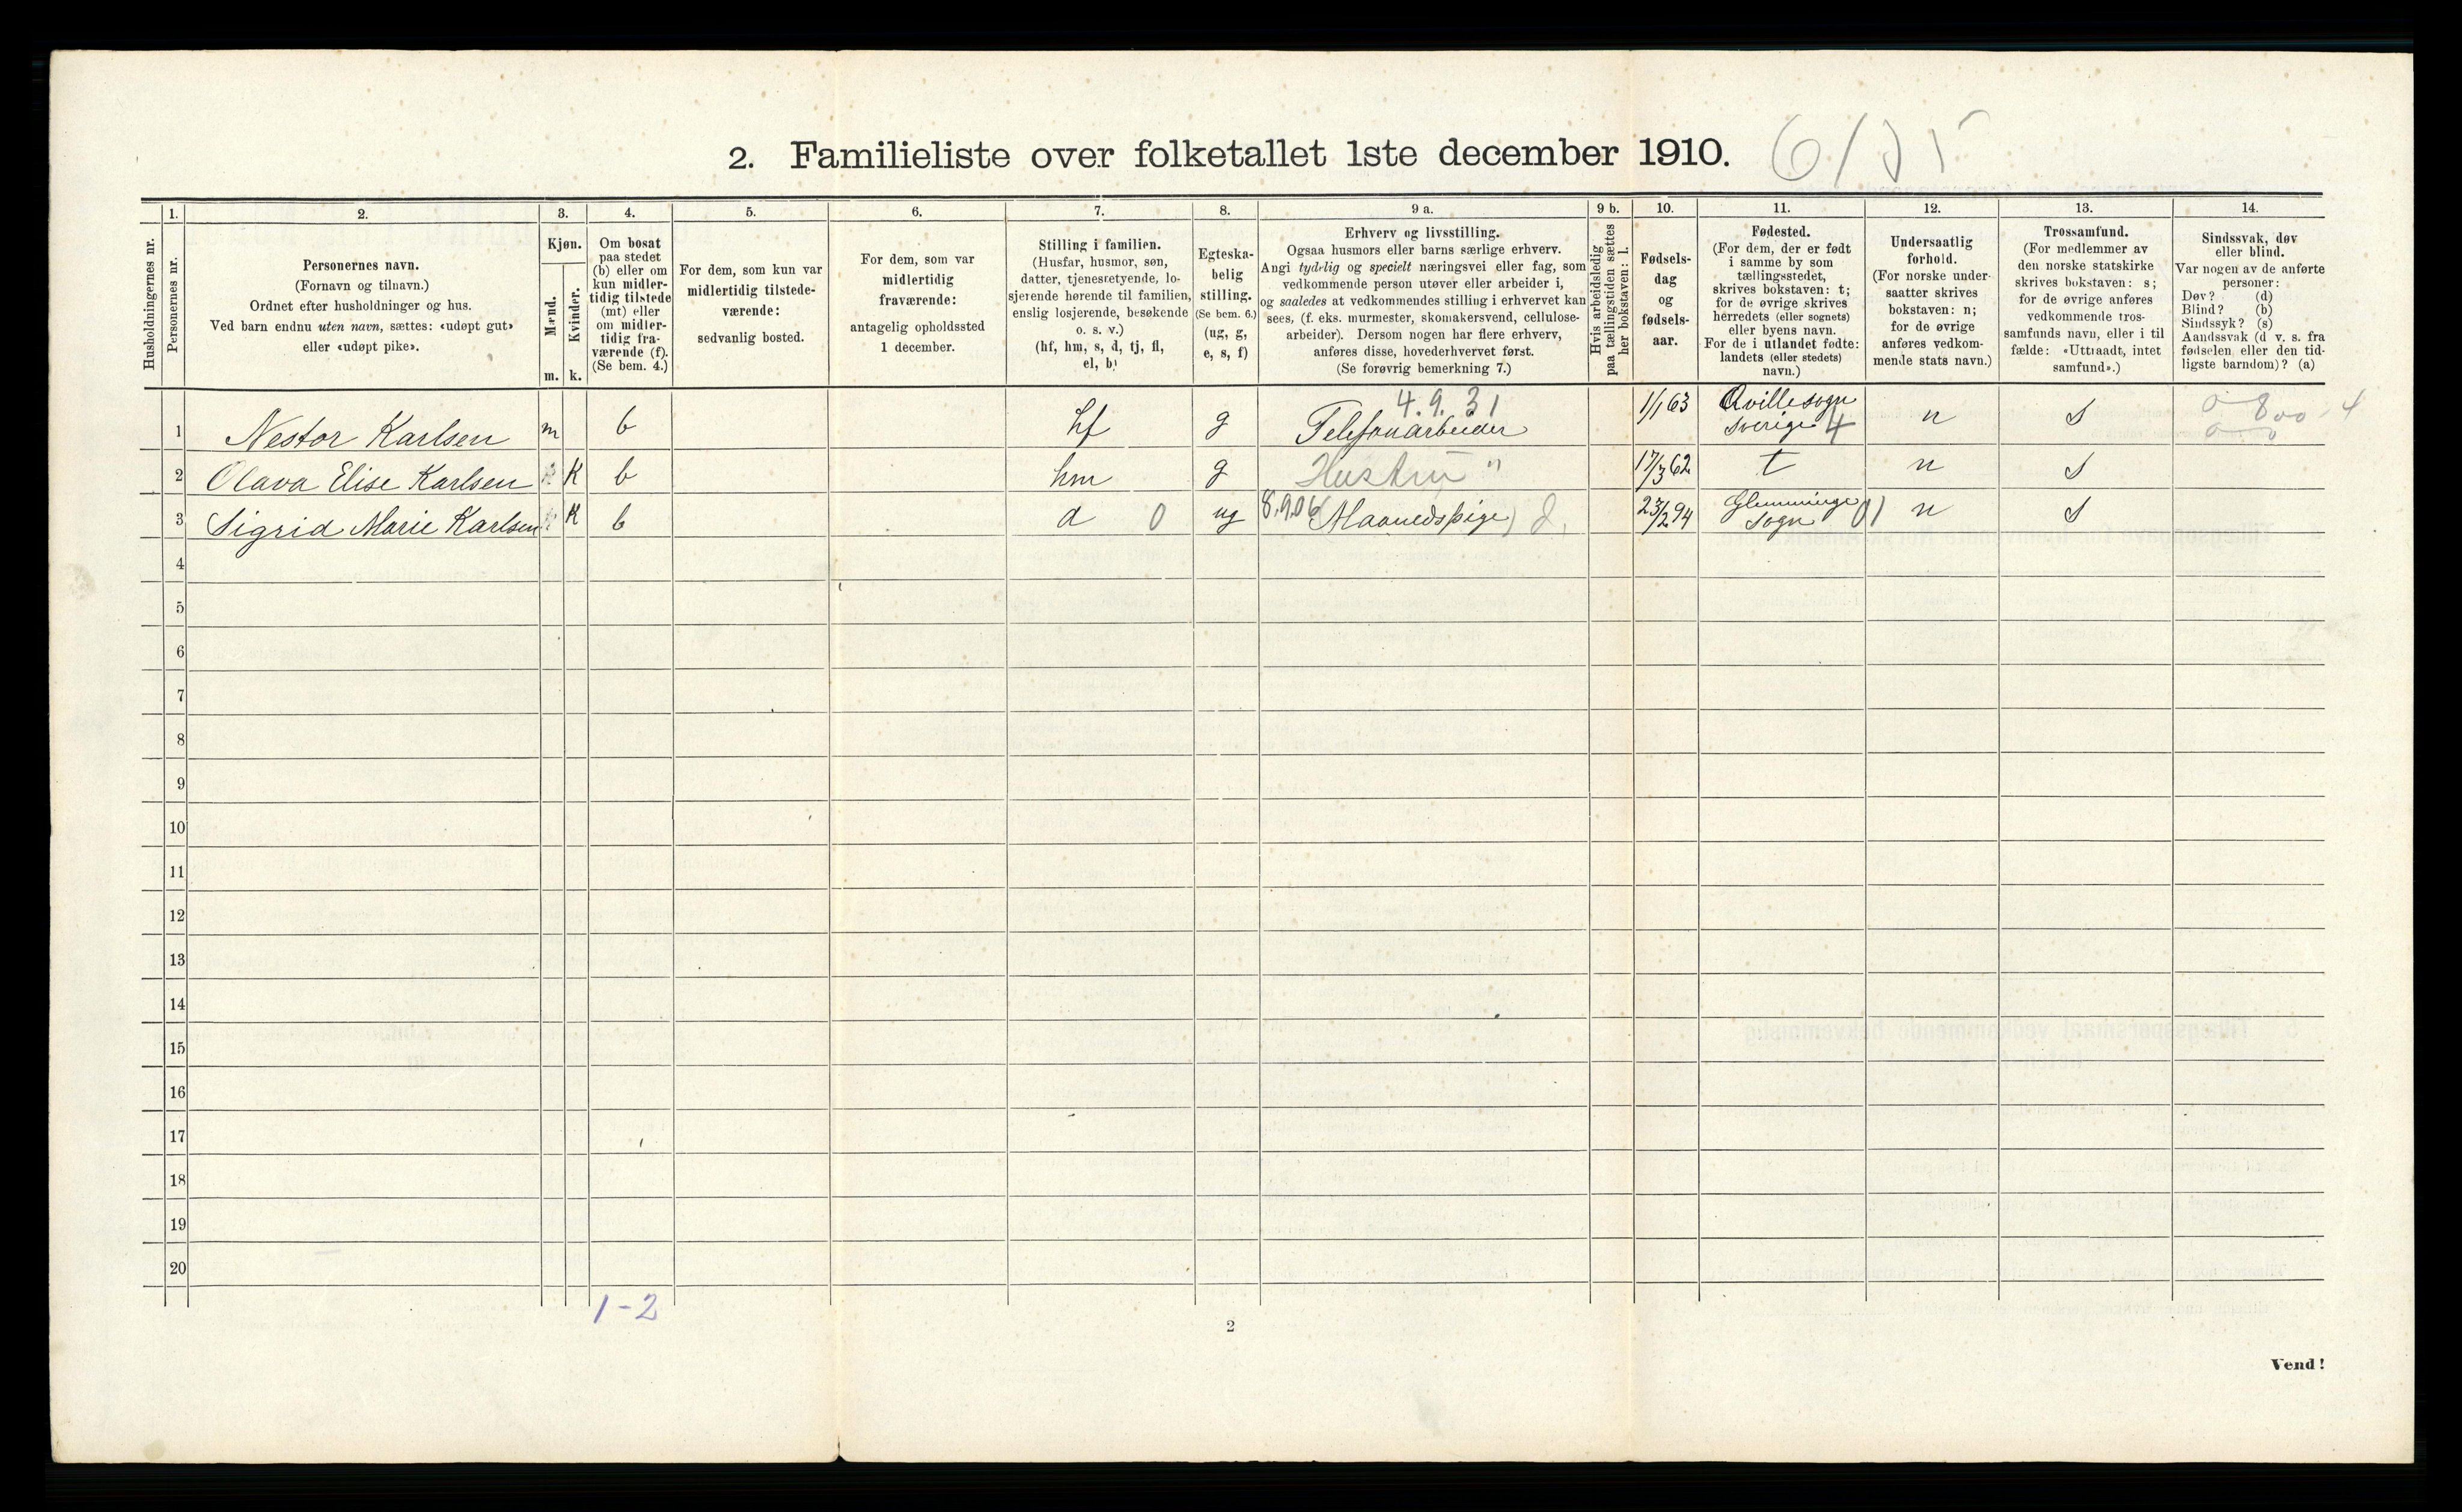 2. Familieliste over folketallet 1ste december 1910.
Husholdningernes nr.
1.
Personernes nr.
2.
Personernes navn.
(Fornavn og tilnavn.)
Ordnet efter husholdninger og hus.
Ved barn endnu uten navn, sættes: «udøpt gut»
eller «udøpt pike».
3.
Kjøn.
Mænd.
Kvinder.
m. k.
4.
Om bosat
paa stedet
(b) eller om
kun midler-
tidig tilstede
(mt) eller
om midler-
tidig fra-
værende (f).
(Se bem. 4.)
5.
For dem, som kun var
midlertidig tilstede-
værende:
sedvanlig bosted.
6.
For dem, som var
midlertidig
fraværende:
antagelig opholdssted
1 december.
7.
Stilling i familien.
(Husfar, husmor, søn,
datter, tjenestetyende, lo-
sjerende hørende til familien,
enslig losjerende, besøkende
o. s. v.)
(hf, hm, s, d, tj, fl,
el, b)
8.
Egteska-
belig
stilling.
(Se bem. 6.)
(ug, g,
e, s, f)
9 a.
Erhverv og livsstilling.
Ogsaa husmors eller barns særlige erhverv.
Angi tydelig og specielt næringsvei eller fag, som
vedkommende person utøver eller arbeider i,
og saaledes at vedkommendes stilling i erhvervet kan
sees, (f. eks. murmester, skomakersvend, cellulose-
arbeider). Dersom nogen har flere erhverv,
anføres disse, hovederhvervet først.
(Se forøvrig bemerkning 7.)
9 b.
Hvis arbeidsledig
paa tællingstiden sættes
her bokstaven: l.
10.
Fødsels-
dag
og
fødsels-
aar.
11.
Fødested.
(For dem, der er født
i samme by som
tællingsstedet,
skrives bokstaven: t;
for de øvrige skrives
herredets (eller sognets)
eller byens navn.
For de i utlandet fødte:
landets (eller stedets)
navn.)
12.
Undersaatlig
forhold.
(For norske under-
saatter skrives
bokstaven: n;
for de øvrige
anføres vedkom-
mende stats navn.)
13.
Trossamfund.
(For medlemmer av
den norske statskirke
skrives bokstaven: s;
for de øvrige anføres
vedkommende tros-
samfunds navn, eller i til
fælde: «Uttraadt, intet
samfund».)
14.
Sindssvak, døv
eller blind.
Var nogen av de anførte
personer:
Døv? (d)
Blind? (b)
Sindssyk? (s)
Aandssvak (d v. s. fra
fødselen eller den tid-
ligste barndom)? (a)
4.9.31
1 Nestor Karlsen m b hf g Telefonarbeider 1/1 63 Qville sogn Sverige 4 n s
2 Olava Elise Karlsen K b hm g Hustru " 17/3 62 t n s
3 Sigrid Marie Karlsen K b d 0 ug 8.9.06 (Maanedspige) d. 23/2 94 Glemminge sogn 01 n s
4
5
6
7
8
9
10
11
12
13
14
15
16
17
18
19
20
1-2
2
Vend!